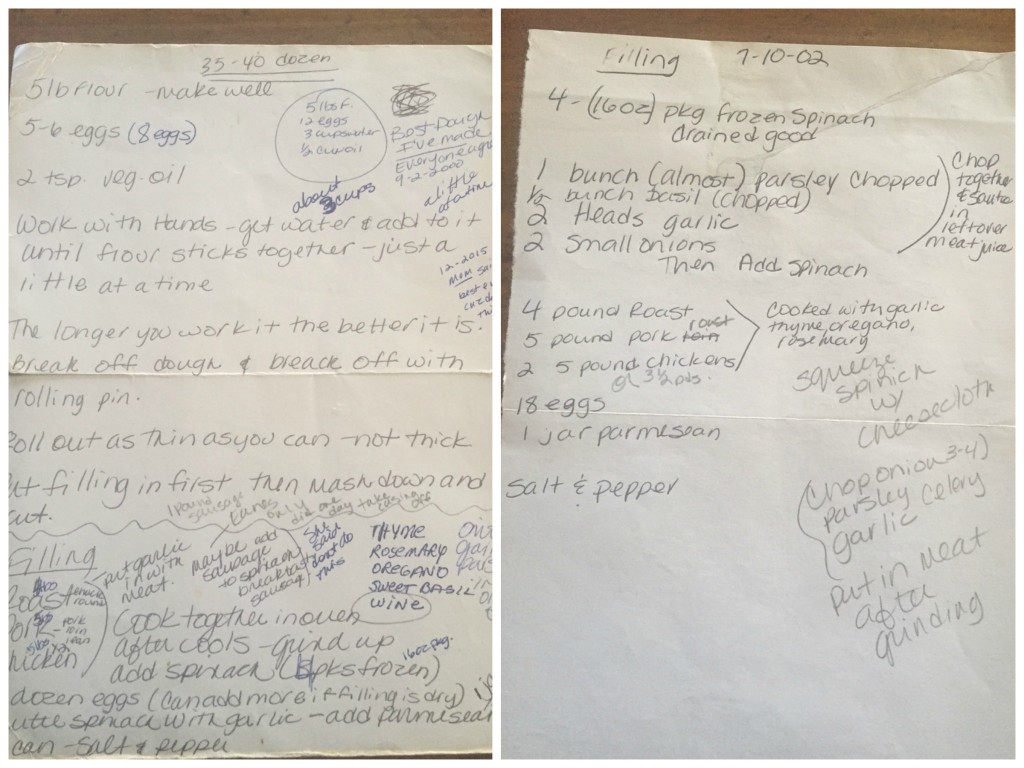 35-40 dozen
5lb flour - make well
5-6 eggs (8 eggs)
5 lbs F.
12 eggs
3 cups water
1/2 cup oil
Best Dough
I've made
Everyone agr
9-2-2000
2 tsp. veg. oil
about
3 cups
a little
at a time
Work with Hands - get water & add to it
until flour sticks together - just a
little at a time
12-2015
Mom
best
The longer you work it the better it is.
Break off dough & breack off with
rolling pin.
Roll out as thin as you can - not thick
Put filling in first then mash down and
cut.
1 pound
sausage
only
did one
day take
casing
off
Filling
put garlic
in with
meat.
maybe add
sausage
to spinach
breakfast
sausage
She
said
don't do
this
THYME
ROSEMARY
OREGANO
SWEET BASIL
WINE
Roast
round
Pork
loin
lean
chicken
Cook together in oven
after cools - grind up
add spinach (pks frozen)
16oz pkg.
dozen eggs (can add more if filling is dry)
spinach with garlic - add parmesean
can - salt & pepper
Filling 7-10-02
4 - (16oz) pkg frozen spinach
drained good
1 bunch (almost) parsley chopped
1/2 bunch basil (chopped)
2 Heads garlic
2 small onions
Then Add Spinach
chop
together
& sauté
in
leftover
meat juice
4 pound Roast
5 pound pork loin roast
2 5 pound chickens
or 3 1/2 pds.
cooked with garlic
thyme, oregano,
rosemary
18 eggs
1 jar parmesean
salt & pepper
squeeze
spinich
w/
cheesecloth
(chop onion 3-4)
parsley celery
garlic
put in meat
after
grinding